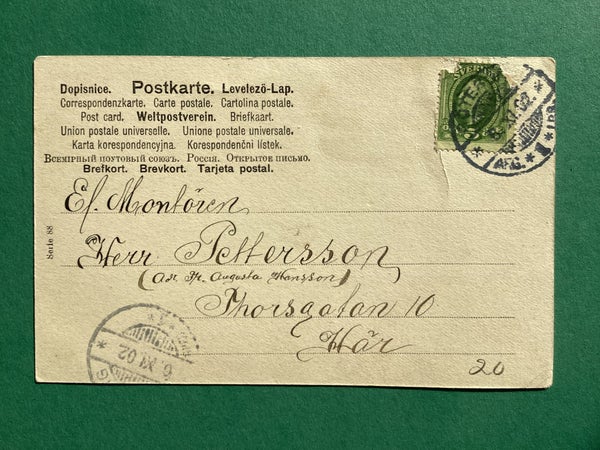 Dopisnice. Postkarte. Levelező-Lap.
Correspondenzkarte. Carte postale. Cartolina postale.
Post card. Weltpostverein. Briefkaart.
Union postale universelle. Unione postale universale.
Karta korespondencyjna. Korespondenční lístek.
Всемірный почтовый союзъ. Россія. Открытое письмо.
Brefkort. Brevkort. Tarjeta postal.
Ef. Montören
Herr Pettersson
Augusta Hansson)
Thorsgatan 10
Här
20
Serie 88
6 XI 02